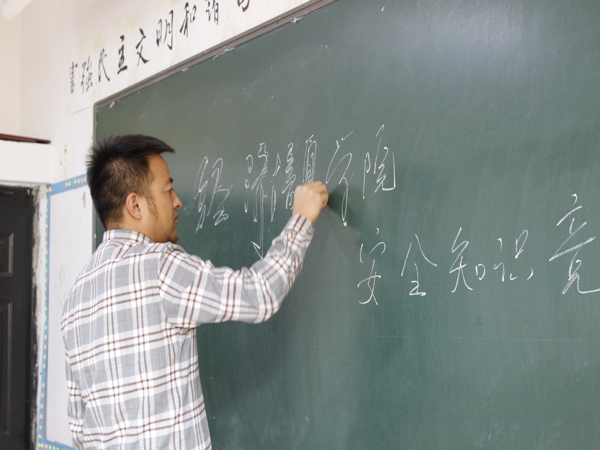 富强民主文明和谐
经济信息学院
安全知识竞